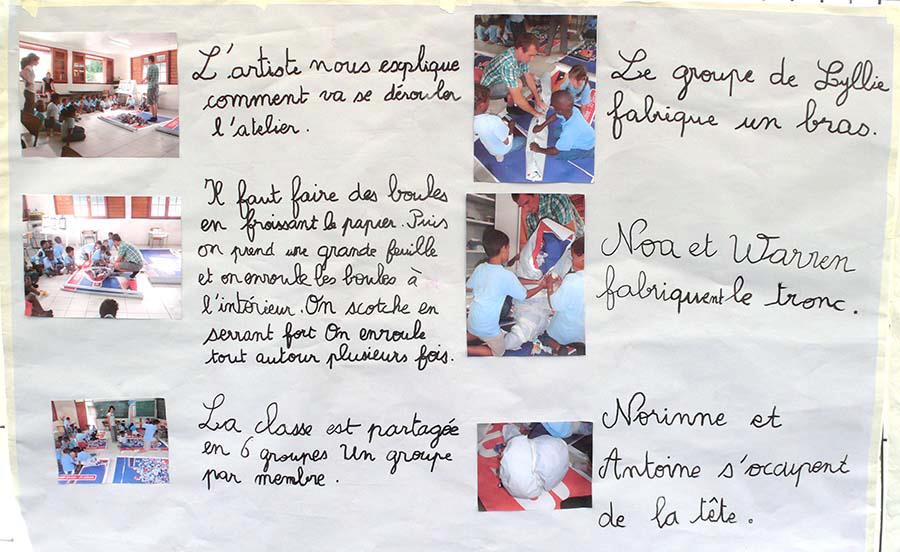 L'artiste nous explique
comment va se dérouler
l'atelier.
Il faut faire des boules
en froissant le papier. Puis
on prend une grande feuille
et on enroule les boules à
l'intérieur. On scotche en
serrant fort On enroule
tout autour plusieurs fois.
La classe est partagée
en 6 groupes Un groupe
par membre.
Le groupe de Lyllie
fabrique un bras.
Noa et Warren
fabriquent le tronc.
Norinne et
Antoine s'occupent
de la tête.